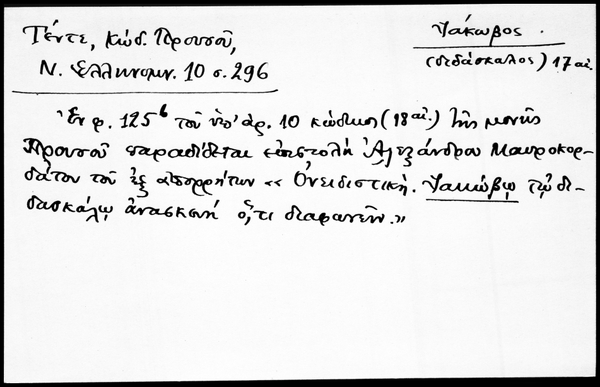 Τέντε, Κώδ. Προυσοῦ,
Ν. Ἑλληνομν. 10 σ. 296
Ἰάκωβος.
(διδάσκαλος) 17 αἰ.
Ἐν φ. 125β τοῦ ὑπ' ἀρ. 10 κώδικος (18 αἰ.) τῆς μονῆς
Προυσοῦ παραδίδεται ἐπιστολὴ Ἀλεξάνδρου Μαυροκορ-
δάτου τοῦ ἐξ ἀπορρήτων «Ὀνειδιστική. Ἰακώβῳ τῷ δι-
δασκάλῳ ὅ,τι»